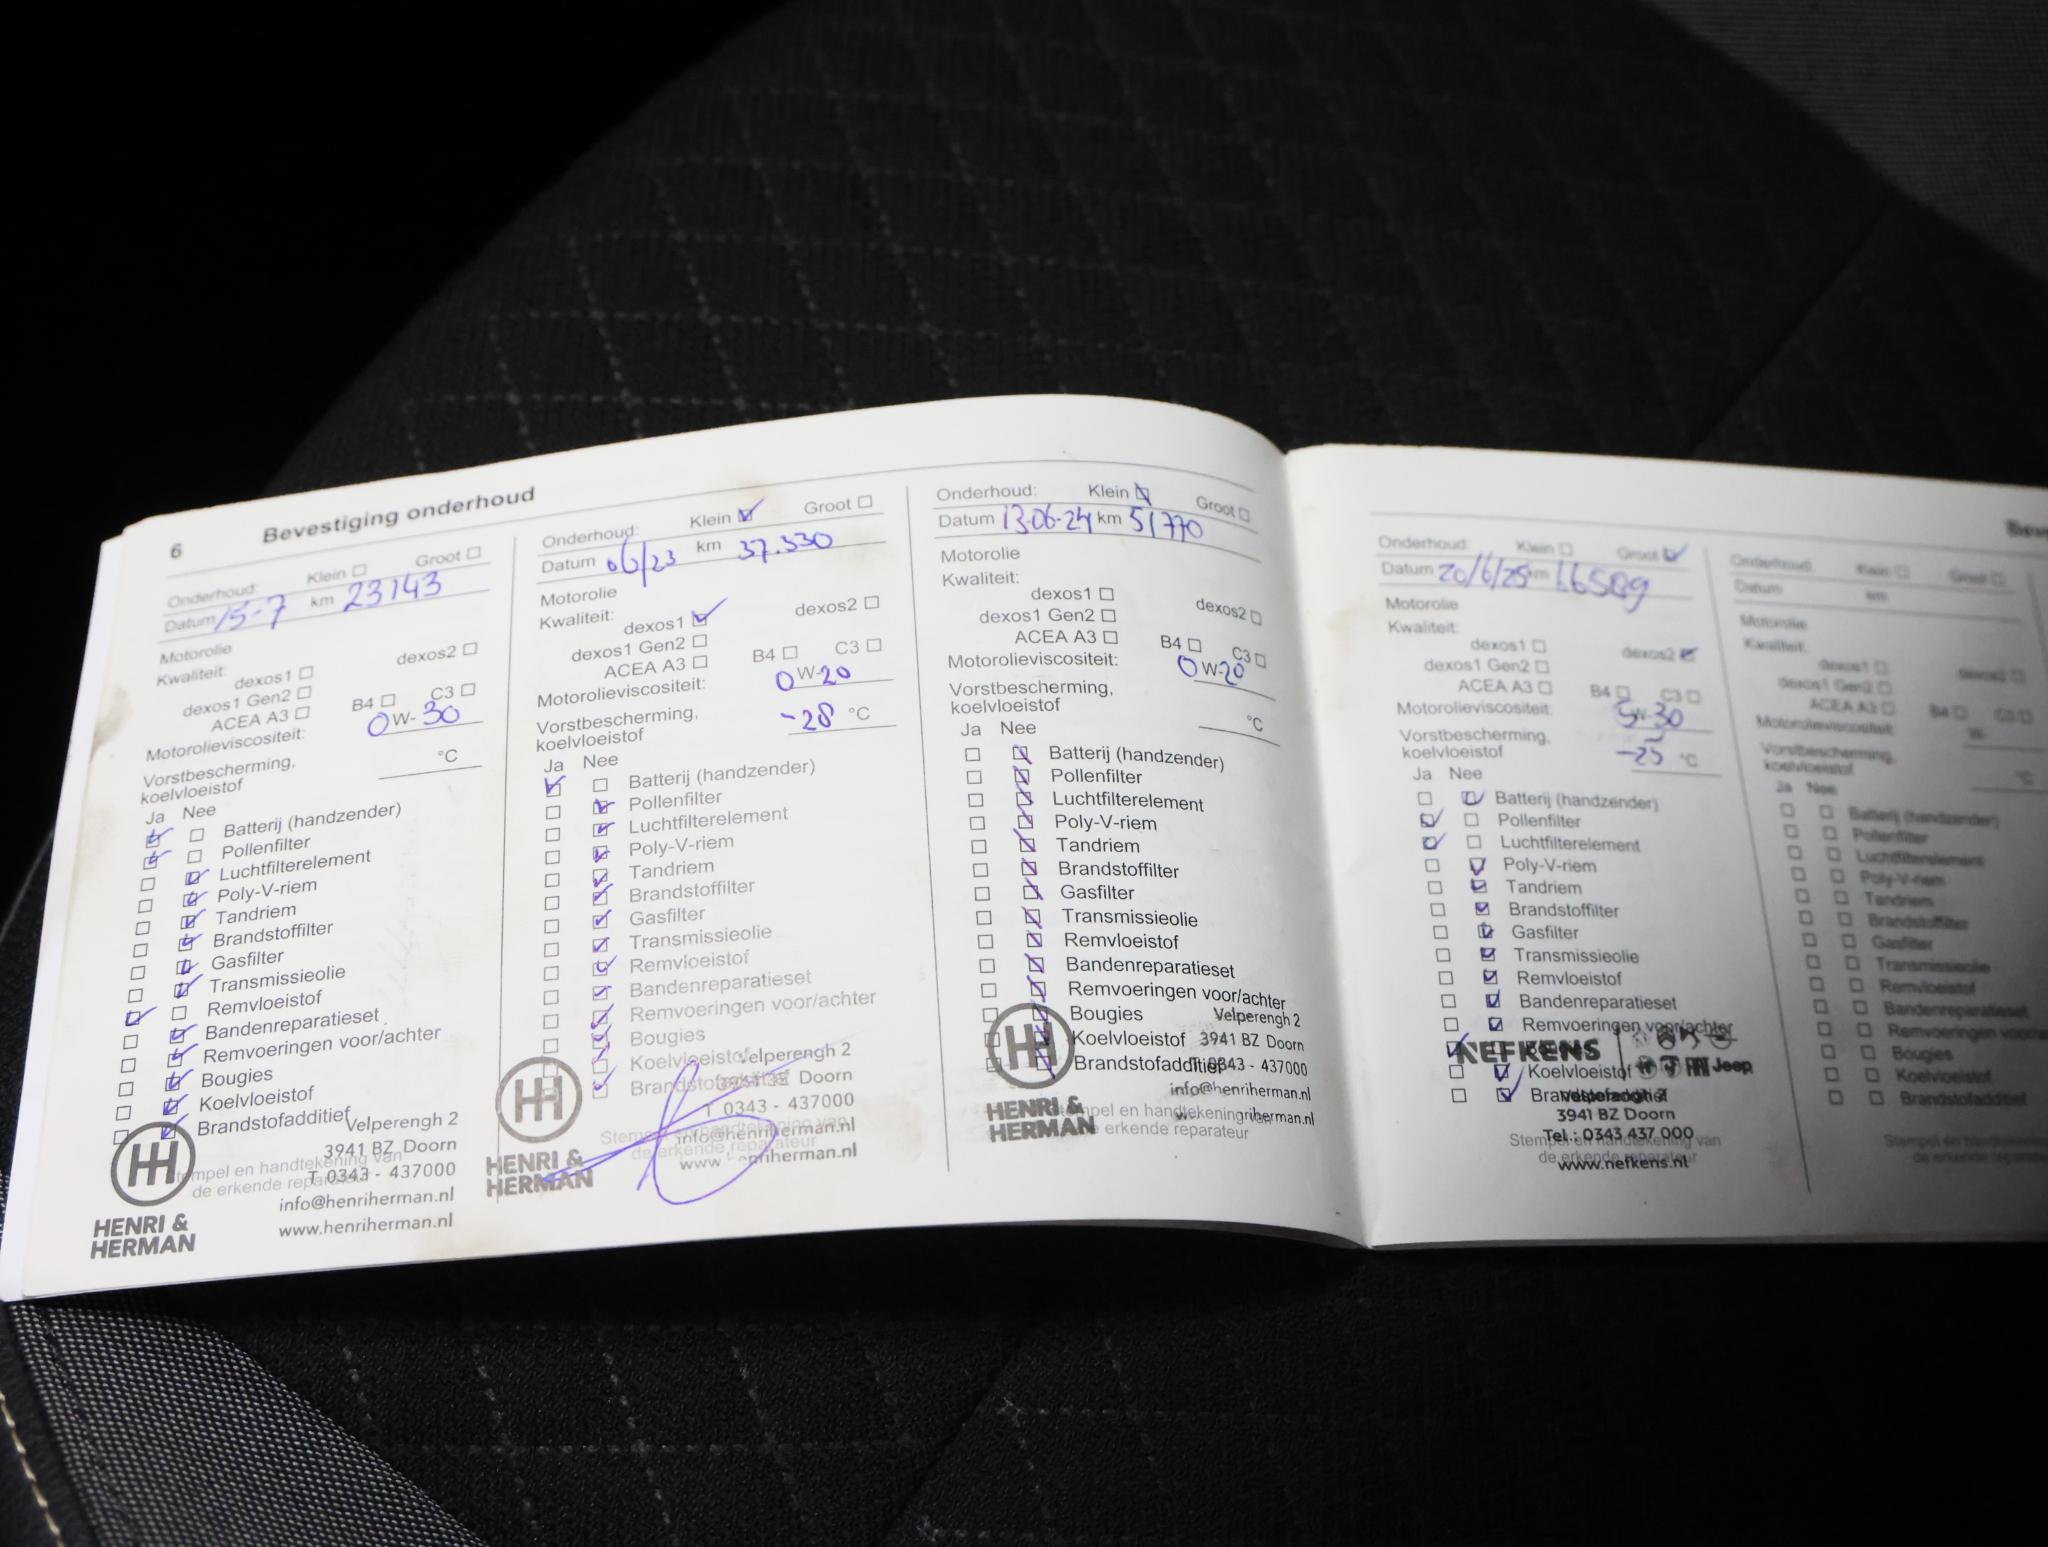 6 Bevestiging onderhoud
Onderhoud: Klein Groot
Datum 15-7 km 23143
Motorolie
Kwaliteit:
dexos1 dexos2
dexos1 Gen2
ACEA A3 B4 C3
Motorolieviscositeit: 0W-30
Vorstbescherming,
koelvloeistof °C
Ja Nee
Batterij (handzender)
Pollenfilter
Luchtfilterelement
Poly-V-riem
Tandriem
Brandstoffilter
Gasfilter
Transmissieolie
Remvloeistof
Bandenreparatieset
Remvoeringen voor/achter
Bougies
Koelvloeistof
Brandstofadditief
Stempel en handtekening van
de erkende reparateur
HENRI &
HERMAN
Velperengh 2
3941 BZ Doorn
T 0343 - 437000
info@henriherman.nl
www.henriherman.nl
Onderhoud: Klein Groot
Datum 06/23 km 37.330
Motorolie
Kwaliteit:
dexos1 dexos2
dexos1 Gen2
ACEA A3 B4 C3
Motorolieviscositeit: 0W-20
Vorstbescherming,
koelvloeistof -28 °C
Ja Nee
Batterij (handzender)
Pollenfilter
Luchtfilterelement
Poly-V-riem
Tandriem
Brandstoffilter
Gasfilter
Transmissieolie
Remvloeistof
Bandenreparatieset
Remvoeringen voor/achter
Bougies
Koelvloeistof
Brandstofadditief
Stempel en handtekening van
de erkende reparateur
HENRI &
HERMAN
Velperengh 2
Doorn
T 0343 - 437000
info@henriherman.nl
www.henriherman.nl
Onderhoud: Klein Groot
Datum 13-06-24 km 51770
Motorolie
Kwaliteit:
dexos1
dexos1 Gen2 dexos2
ACEA A3 B4 C3
Motorolieviscositeit: 0W-20
Vorstbescherming,
koelvloeistof °C
Ja Nee
Batterij (handzender)
Pollenfilter
Luchtfilterelement
Poly-V-riem
Tandriem
Brandstoffilter
Gasfilter
Transmissieolie
Remvloeistof
Bandenreparatieset
Remvoeringen voor/achter
Bougies
Koelvloeistof
Brandstofadditief
Stempel en handtekening van
de erkende reparateur
HENRI &
HERMAN
Velperengh 2
3941 BZ Doorn
T 0343 - 437000
info@henriherman.nl
Onderhoud: Klein Groot
Datum 20/6/25 km
Motorolie
Kwaliteit:
dexos1 dexos2
dexos1 Gen2
ACEA A3 B4 C3
Motorolieviscositeit: 5W-30
Vorstbescherming,
koelvloeistof -25 °C
Ja Nee
Batterij (handzender)
Pollenfilter
Luchtfilterelement
Poly-V-riem
Tandriem
Brandstoffilter
Gasfilter
Transmissieolie
Remvloeistof
Bandenreparatieset
Remvoeringen voor/achter
Koelvloeistof
Brandstofadditief
Stempel en handtekening van
de erkende reparateur
NEFKENS
FIAT Jeep
Velperengh 2
3941 BZ Doorn
Tel.: 0343 437 000
www.nefkens.nl
Onderhoud: Klein Groot
Datum km
Motorolie
Kwaliteit:
dexos1 dexos2
dexos1 Gen2
ACEA A3 B4 C3
Motorolieviscositeit: W-
Vorstbescherming,
koelvloeistof °C
Ja Nee
Batterij (handzender)
Pollenfilter
Luchtfilterelement
Poly-V-riem
Tandriem
Brandstoffilter
Gasfilter
Transmissieolie
Remvloeistof
Bandenreparatieset
Remvoeringen
Bougies
Koelvloeistof
Brandstofadditief